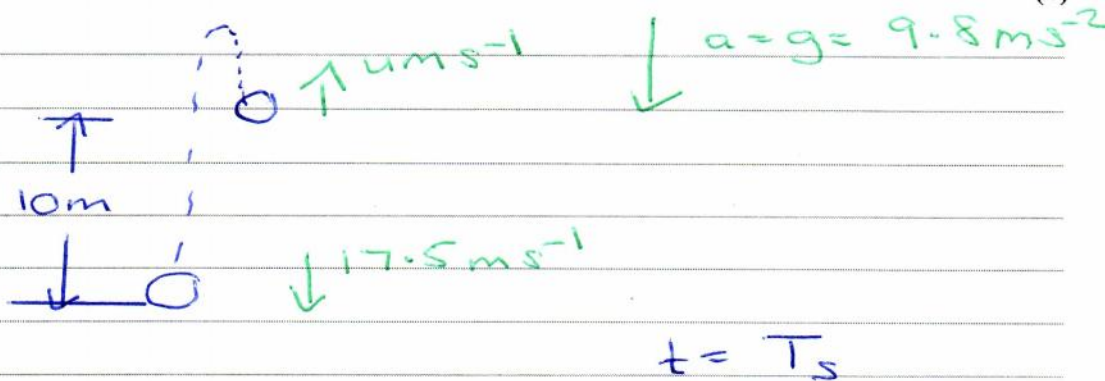 ums⁻¹
a = g = 9.8ms⁻²
10m
17.5ms⁻¹
t = Ts